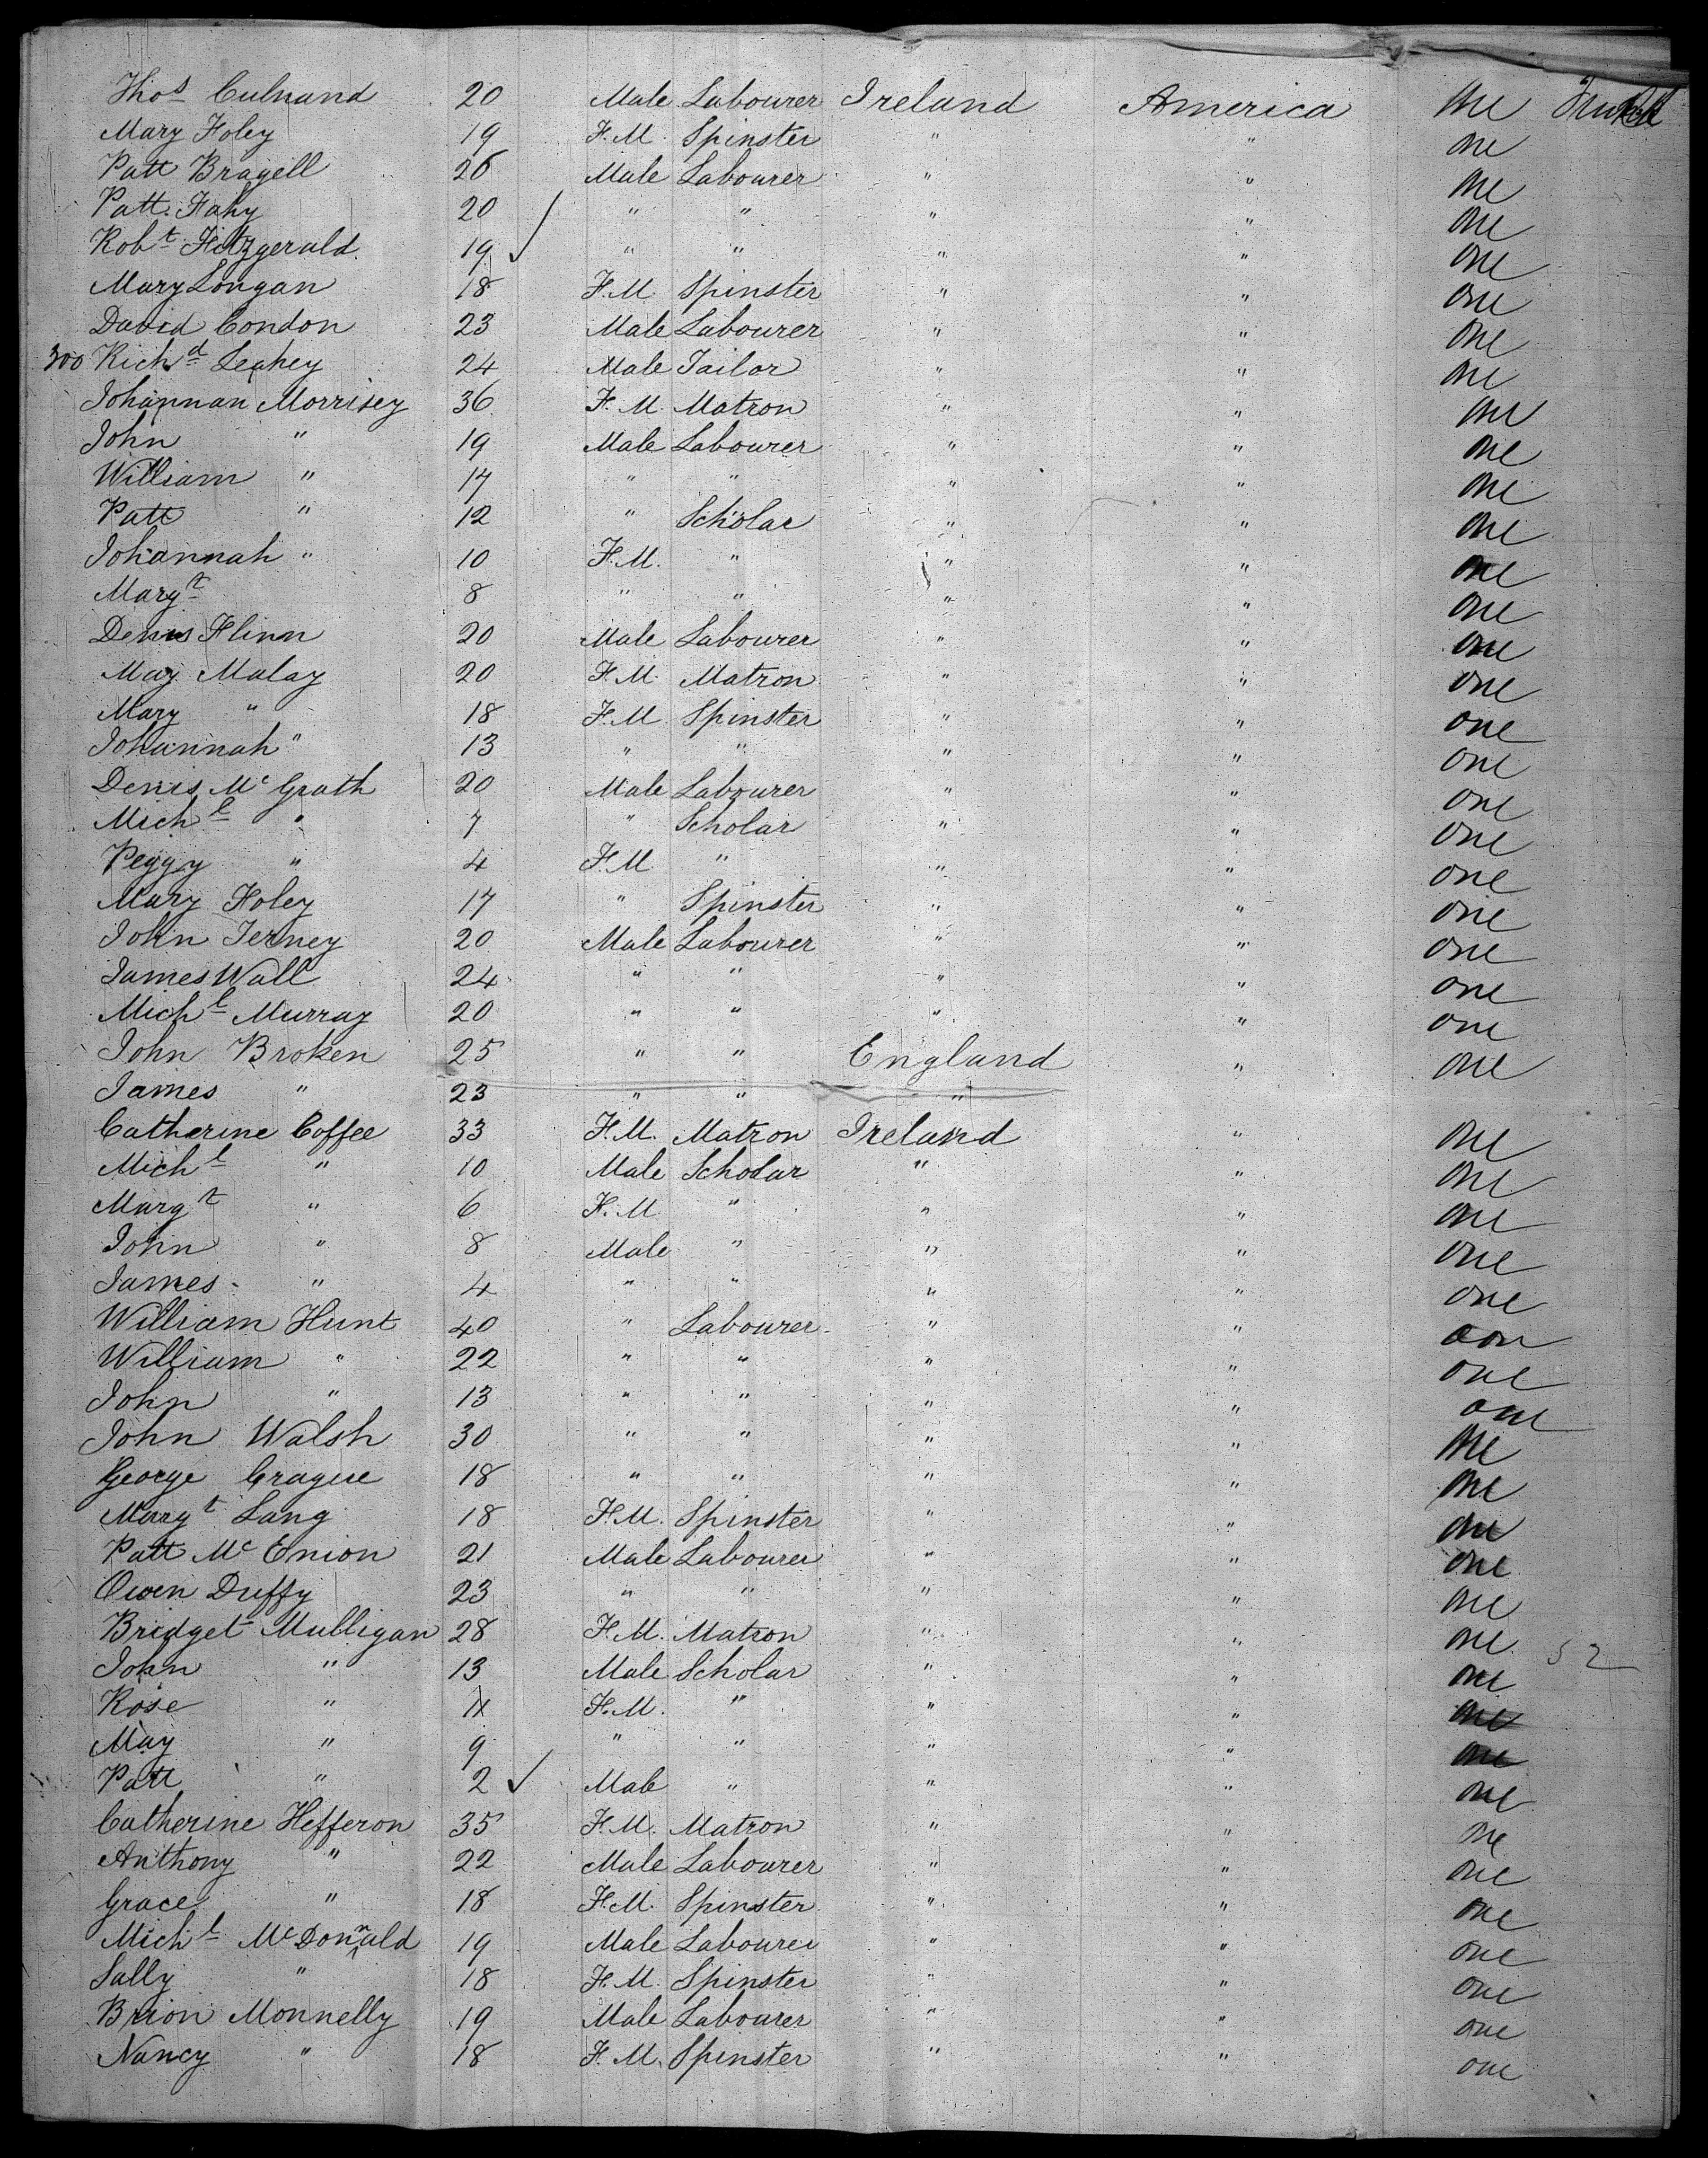 Thos Culnand 20 Male Labourer Ireland America one Trunk
Mary Foley 19 F.M. Spinster " " one
Patt Bragell 26 Male Labourer " " one
Patt. Fahy 20 " " " " one
Robt Fitzgerald. 19 " " " " one
Mary Longan 18 F.M. Spinster " " one
David Condon 23 Male Labourer " " one
300 Richd Leahey 24 Male Tailor " " one
Johannan Morrisey 36 F.M. Matron " " one
John " 19 Male Labourer " " one
William " 17 " " " " one
Patt " 12 " Scholar " " one
Johannah " 10 F.M. " " " one
Margt 8 " " " " one
Denis Flinn 20 Male Labourer " " one
May Malay 20 F.M. Matron " " one
Mary " 18 F.M. Spinster " " one
Johannah " 13 " " " " one
Denis Mc Grath 20 Male Labourer " " one
Michl " 7 " Scholar " " one
Peggy " 4 F.M " " " one
Mary Foley 17 " Spinster " " one
John Terney 20 Male Labourer " " one
James Wall 24 " " " " one
Michl Murray 20 " " " " one
John Broken 25 " " England " one
James " 23 " " "
Catherine Coffee 33 F.M. Matron Ireland " one
Michl " 10 Male Scholar " " one
Margt " 6 F.M " " " one
John " 8 Male " " " one
James " 4 " " " " one
William Hunt 40 " Labourer " " oon
William " 22 " " " " one
John " 13 " " " " one
John Walsh 30 " " " " one
George Crague 18 " " " " one
Margt Lang 18 F.M. Spinster " " one
Patt Mc Enion 21 Male Labourer " " one
Owen Duffy 23 " " " " one
Bridget Mulligan 28 F.M. Matron " " one 52
John " 13 Male Scholar " " one
Rose " 11 F.M. " " " one
May " 9 " " " " one
Patt " 2 Male " " " one
Catherine Hefferon 35 F.M. Matron " " one
Anthony " 22 Male Labourer " " one
Grace " 18 F.M. Spinster " " one
Michl McDonnald 19 Male Labourer " " one
Sally " 18 F.M. Spinster " " one
Brion Monnelly 19 Male Labourer " " one
Nancy " 18 F.M. Spinster " " one